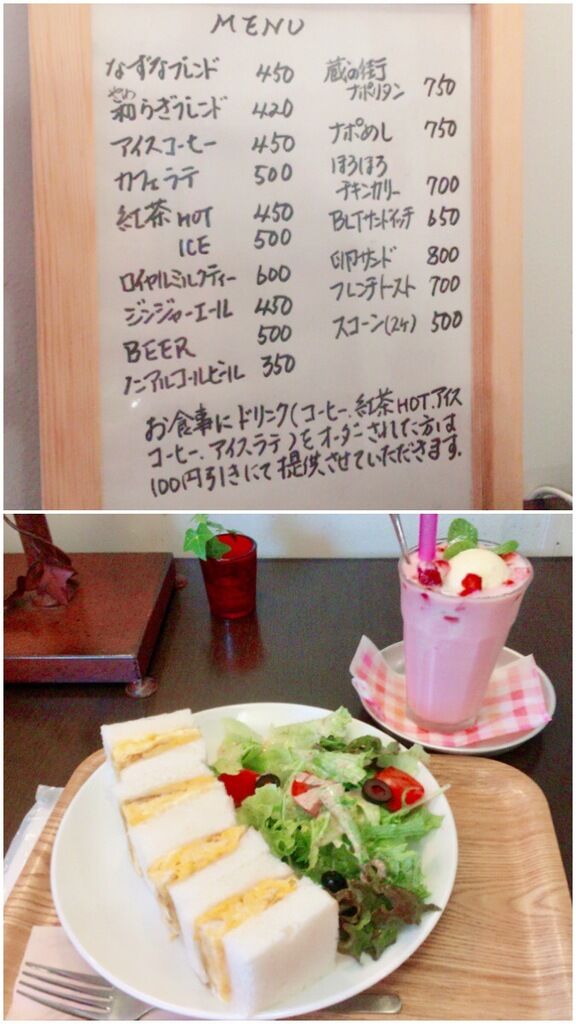 MENU
なずなブレンド 450
やわ
和らぎブレンド 420
アイスコーヒー 450
カフェラテ 500
紅茶 HOT 450
ICE 500
ロイヤルミルクティー 600
ジンジャーエール 450
BEER 500
ノンアルコールビール 350
蔵の街
ナポリタン 750
ナポめし 750
ほろほろ
チキンカリー 700
BLTサンドイッチ 650
卵サンド 800
フレンチトースト 700
スコーン(2ケ) 500
お食事にドリンク(コーヒー、紅茶HOT、アイス
コーヒー、アイス、ラテ)をオーダーされた方は
100円引きにて提供させていただきます。